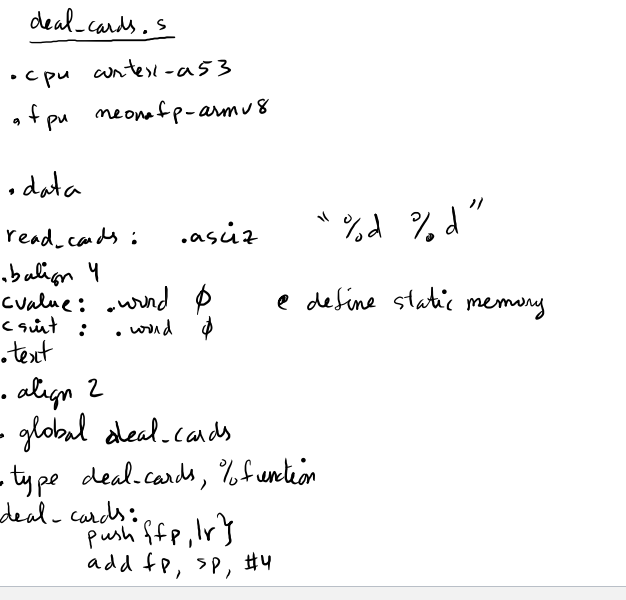 deal_cards.s
.cpu cortex-a53
.fpu neon-fp-armv8
.data
read_cards: .asciz "%d %d"
.balign 4
cvalue: .word 0 @ define static memory
csuit: .word 0
.text
.align 2
.global deal_cards
.type deal_cards, %function
deal_cards:
push {fp,lr}
add fp, sp, #4